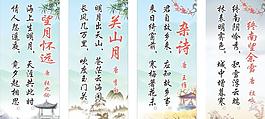 望月怀远
唐 张九龄
海上生明月 天涯共此时
情人怨遥夜 竟夕起相思
关山月
唐 李白
明月出天山 苍茫云海间
长风几万里 吹度玉门关
杂诗
唐 王维
君自故乡来 应知故乡事
来日绮窗前 寒梅著花未
终南望余雪
唐 祖咏
终南阴岭秀 积雪浮云端
林表明霁色 城中增暮寒